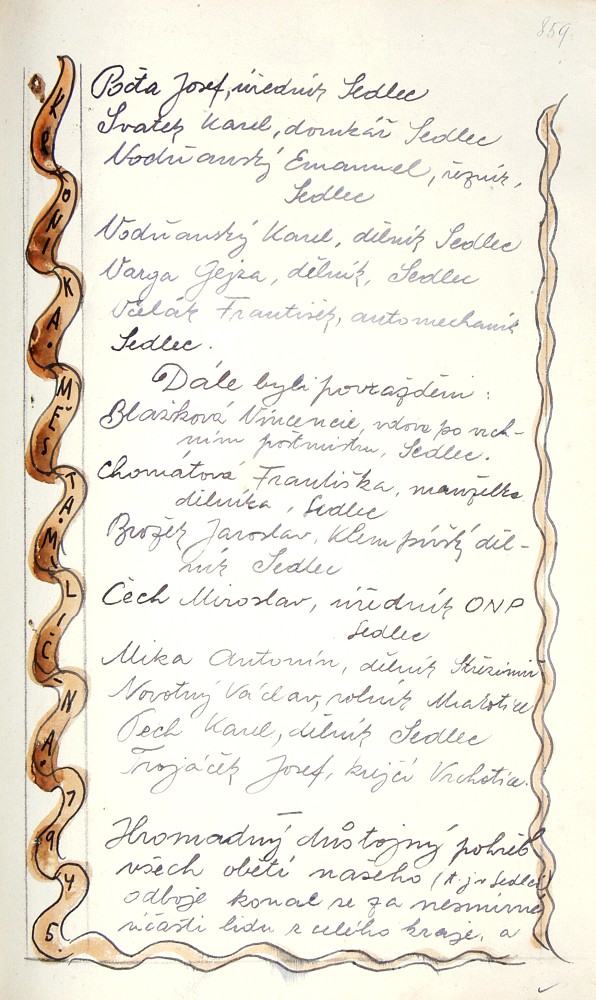 859
KRONIKA. MĚSTA. MILIČÍNA. 1945.
Pošta Josef, úředník Sedlec
Svatek Karel, domkář Sedlec
Vodňanský Emanuel, řezník,
Sedlec
Vodňanský Karel, dělník Sedlec
Varga Gejza, dělník, Sedlec
Včelák František, automechanik
Sedlec.
Dále byli povražděni:
Blažková Vincencie, vdova po vrch-
ním poštmistru, Sedlec.
Chomátová Františka, manželka
dělníka, Sedlec
Brožek Jaroslav, klempířský děl-
ník Sedlec
Čech Miroslav, úředník ONP
Sedlec
Mika Antonín, dělník Střezimíř
Novotný Václav, rolník Mrakotice
Pech Karel, dělník Sedlec
Trojáček Josef, krejčí Vrchotice.
Hromadný důstojný pohřeb
všech obětí našeho (t.j. v Sedlci)
odboje konal se za nesmírné
účasti lidu z celého kraje, a